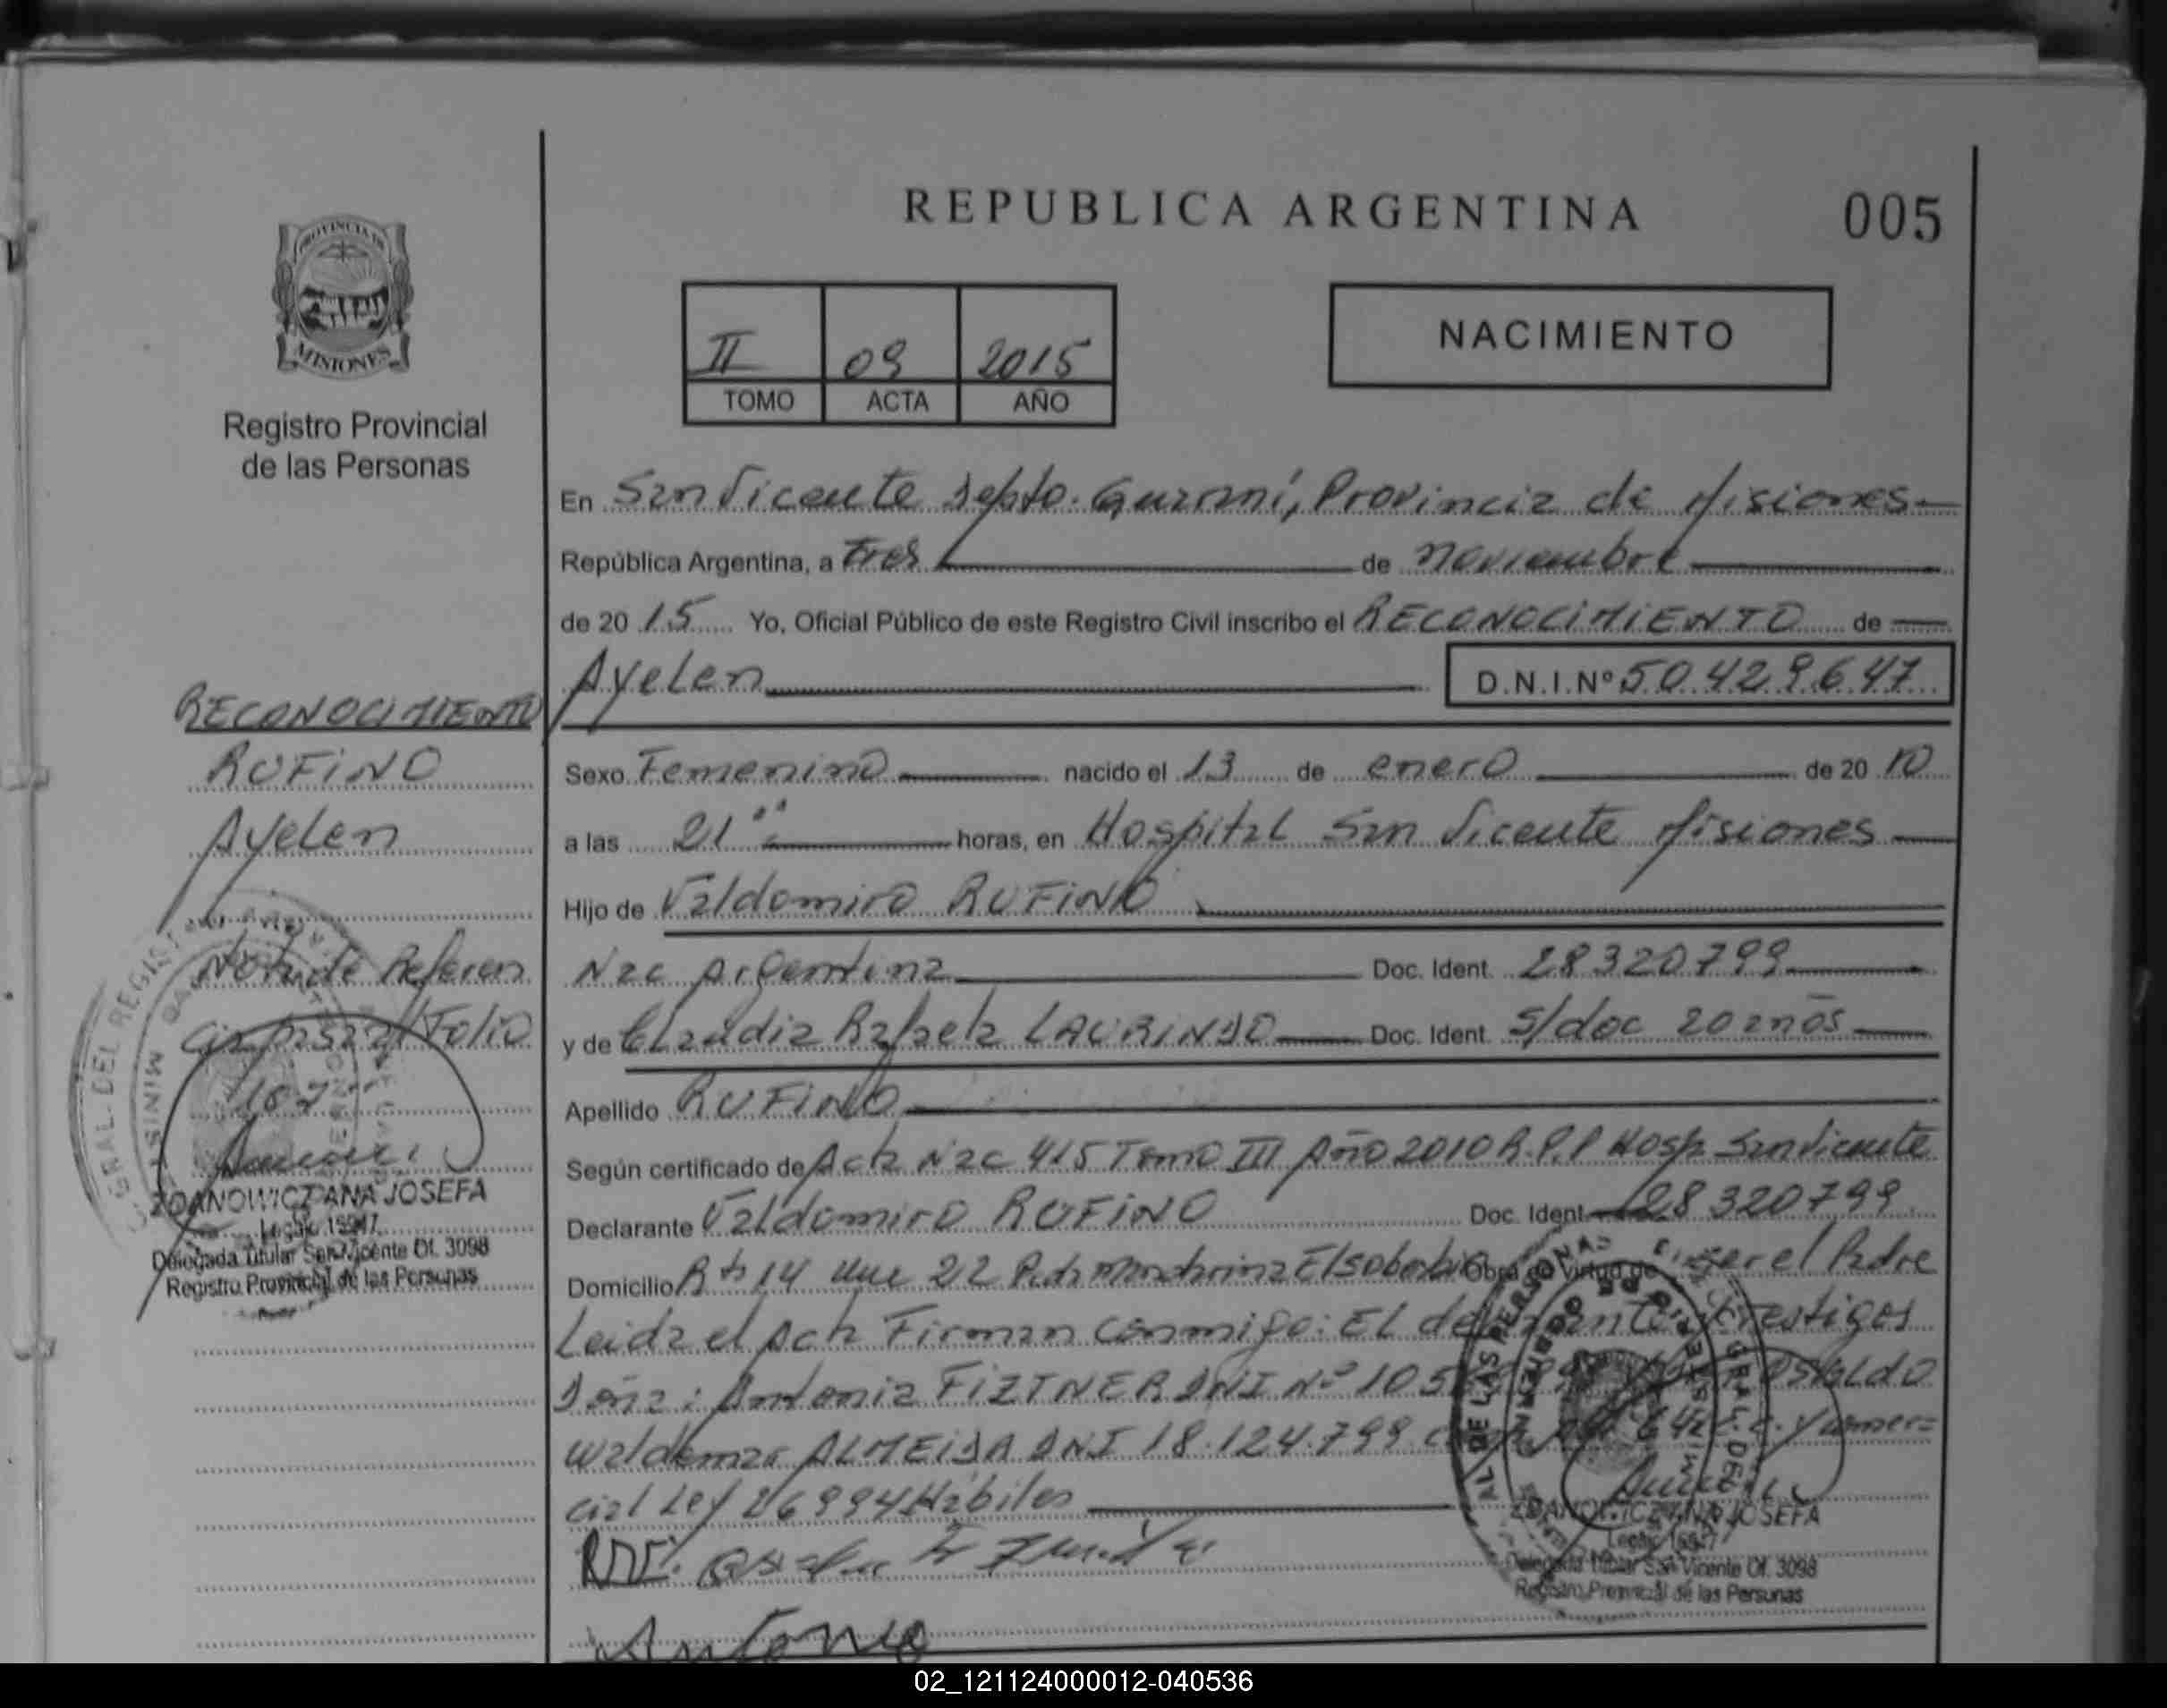 REPUBLICA ARGENTINA
005
PROVINCIA DE
MISIONES
Registro Provincial
de las Personas
II 09 2015
TOMO ACTA AÑO
NACIMIENTO
En San Vicente Depto. Guaraní, Provincia de Misiones
República Argentina, a tres de noviembre
de 2015 Yo, Oficial Público de este Registro Civil inscribo el RECONOCIMIENTO de
Ayelen D.N.I.Nº 50.429.647
Sexo Femenino nacido el 13 de enero de 2010
a las 21 horas, en Hospital San Vicente Misiones
Hijo de Valdomiro RUFINO
Nac Argentina Doc. Ident. 28320799
y de Claudia Rafaela LAURINDO Doc. Ident. S/doc 20 años
Apellido RUFINO
Según certificado de Acta Nac 415 Tomo III Año 2010 R.P.P Hosp. San Vicente
Declarante Valdomiro RUFINO Doc. Ident. 28320799
Domicilio Rta 14 22 Obra en virtud de ser el Padre
Leida el Acta Firman conmigo: El testigos
Doña: Antonia FIZTNER DNI Nº 105 OSVALDO
Waldemar ALMEIDA DNI 18.124.799 C. y Comer=
cial Ley 26994 Hábiles
Antonia
ZDANOWICZ ANA JOSEFA
Delegada Titular San Vicente Of. 3098
Registro Provincial de las Personas
RECONOCIMIENTO
RUFINO
Ayelen
Nota de Referen
cia Folio
107
ZDANOWICZ ANA JOSEFA
Delegada Titular San Vicente Of. 3098
Registro Provincial de las Personas
02_121124000012-040536